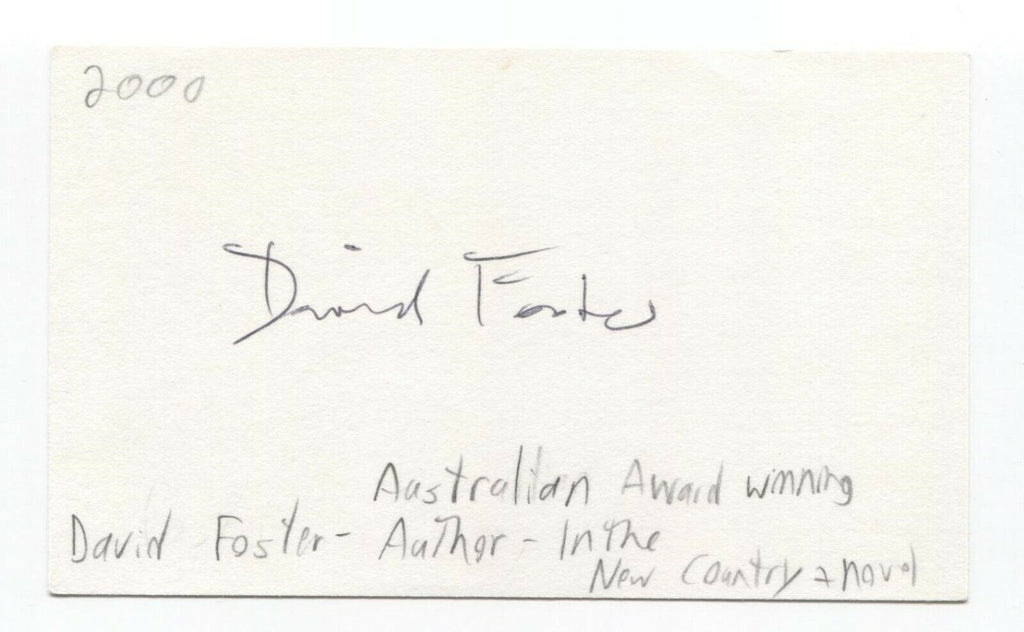 2000
David Foster
Australian Award winning
David Foster - Author - In the
New Country novel